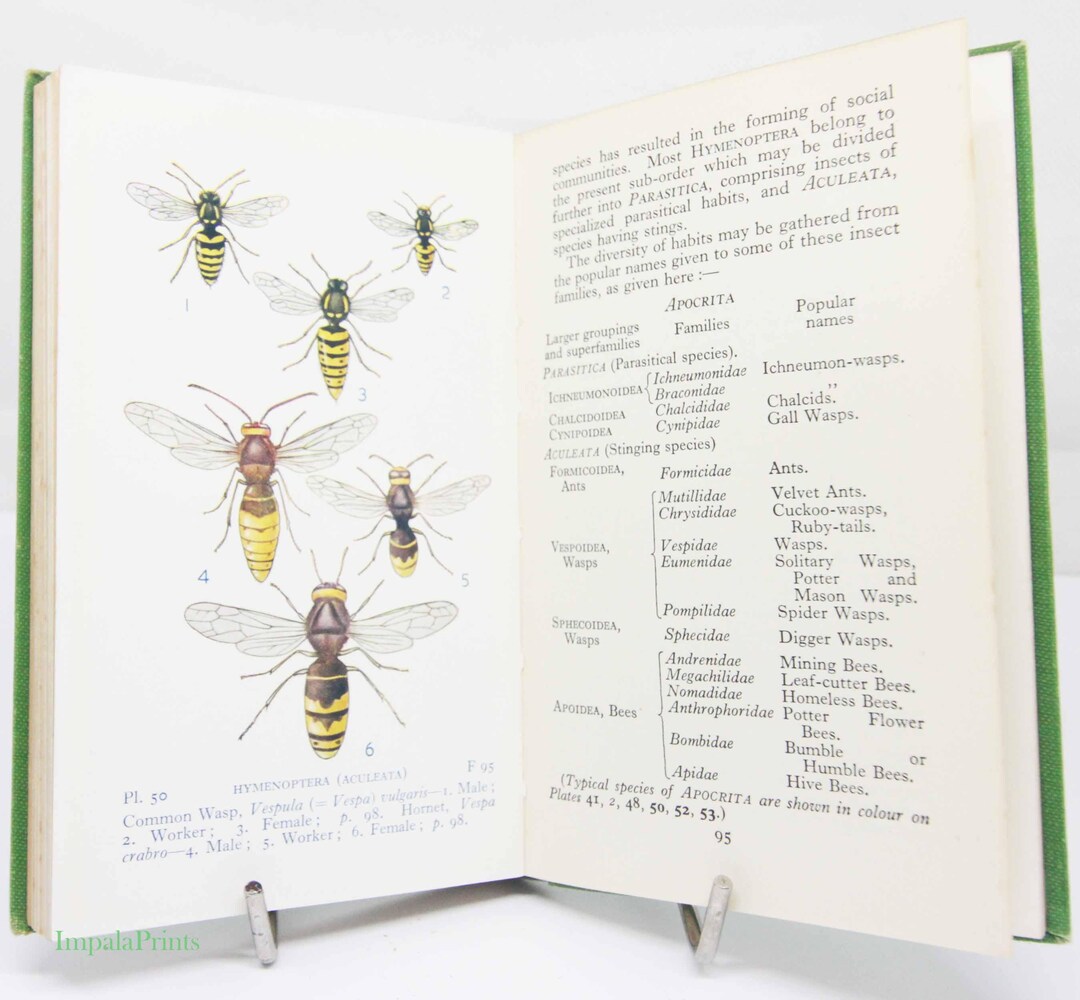 1
2
3
4
5
6
Pl. 50 HYMENOPTERA (ACULEATA) F 95
Common Wasp, Vespula (= Vespa) vulgaris—1. Male;
2. Worker; 3. Female; p. 98. Hornet, Vespa
crabro—4. Male; 5. Worker; 6. Female; p. 98.
species has resulted in the forming of social
communities. Most HYMENOPTERA belong to
the present sub-order which may be divided
further into PARASITICA, comprising insects of
specialized parasitical habits, and ACULEATA,
species having stings.
The diversity of habits may be gathered from
the popular names given to some of these insect
families, as given here :—
APOCRITA
Larger groupings Families Popular
and superfamilies names
PARASITICA (Parasitical species).
ICHNEUMONOIDEA { Ichneumonidae Ichneumon-wasps.
Braconidae ,,
CHALCIDOIDEA Chalcididae Chalcids.
CYNIPOIDEA Cynipidae Gall Wasps.
ACULEATA (Stinging species)
FORMICOIDEA, Formicidae Ants.
Ants
Mutillidae Velvet Ants.
Chrysididae Cuckoo-wasps,
Ruby-tails.
VESPOIDEA, Vespidae Wasps.
Wasps Eumenidae Solitary Wasps,
Potter and
Mason Wasps.
Pompilidae Spider Wasps.
SPHECOIDEA, Sphecidae Digger Wasps.
Wasps
Andrenidae Mining Bees.
Megachilidae Leaf-cutter Bees.
Nomadidae Homeless Bees.
APOIDEA, Bees Anthrophoridae Potter Flower
Bees.
Bombidae Bumble or
Humble Bees.
Apidae Hive Bees.
(Typical species of APOCRITA are shown in colour on
Plates 41, 2, 48, 50, 52, 53.)
95
ImpalaPrints